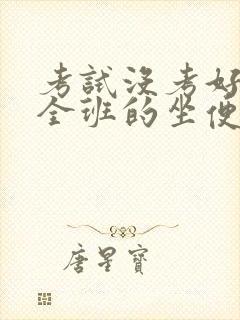 考試沒考好
全班的坐便
唐星寶